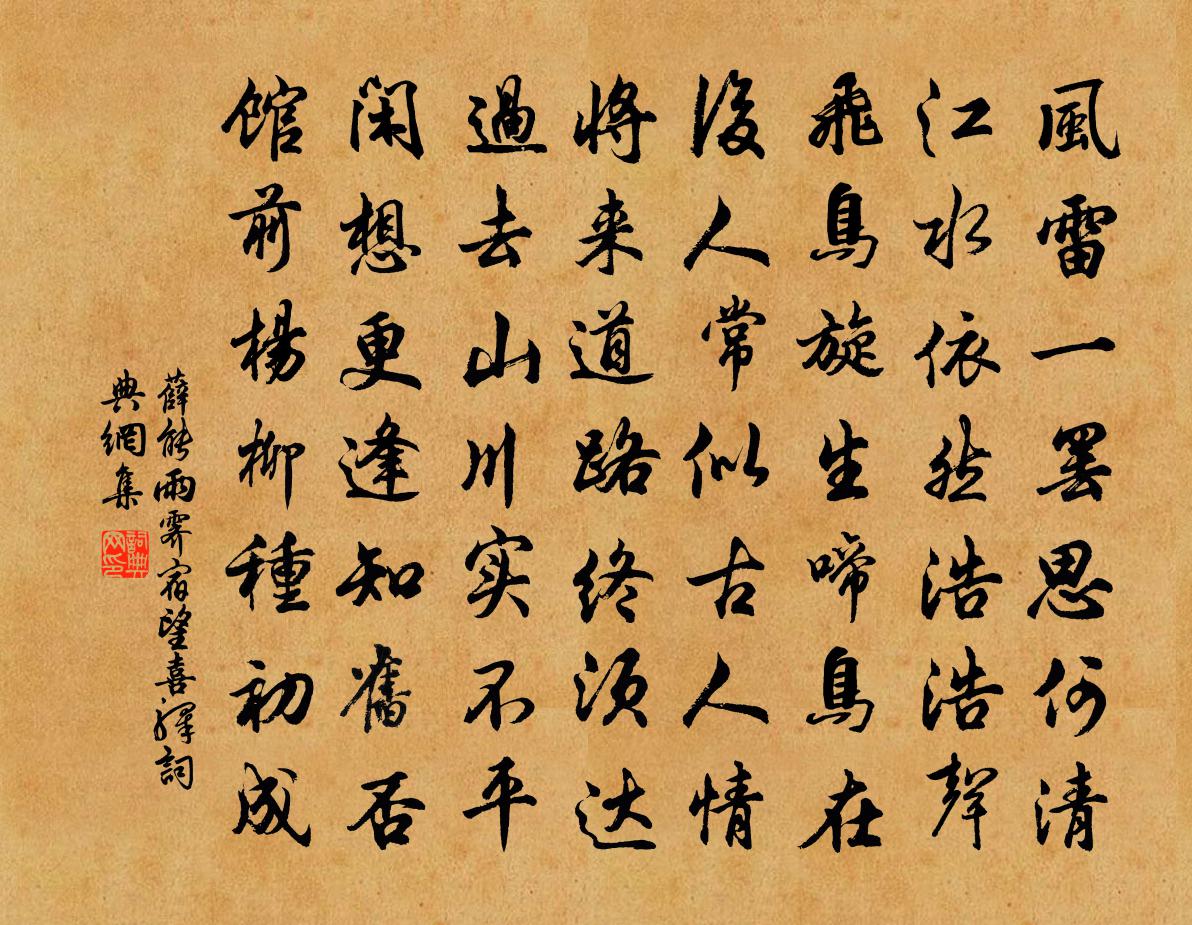 風雷一罢思何清
江水依然浩浩聲
飛鳥旋生啼鳥在
後人常似古人情
将来道路终须达
過去山川实不平
闲想更逢知舊否
馆前楊柳種初成
薛能雨霁宿望喜驿詞
典網集
詞典网印